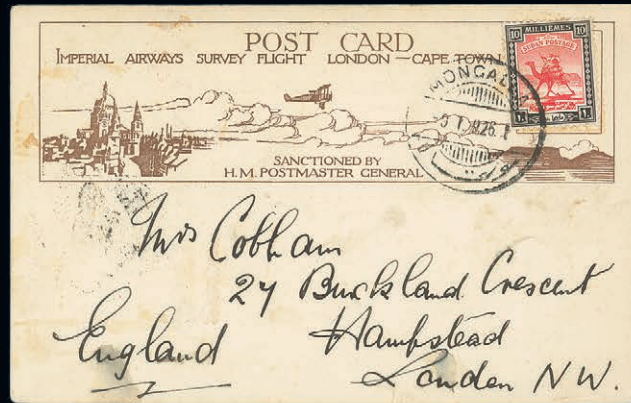 POST CARD
IMPERIAL AIRWAYS SURVEY FLIGHT LONDON — CAPE TOWN
SANCTIONED BY
H.M. POSTMASTER GENERAL
10 MILLIEMES 10
SUDAN POSTAGE
MONGALLA
Mrs Cobham
27 Buckland Crescent
Hampstead
London NW.
England